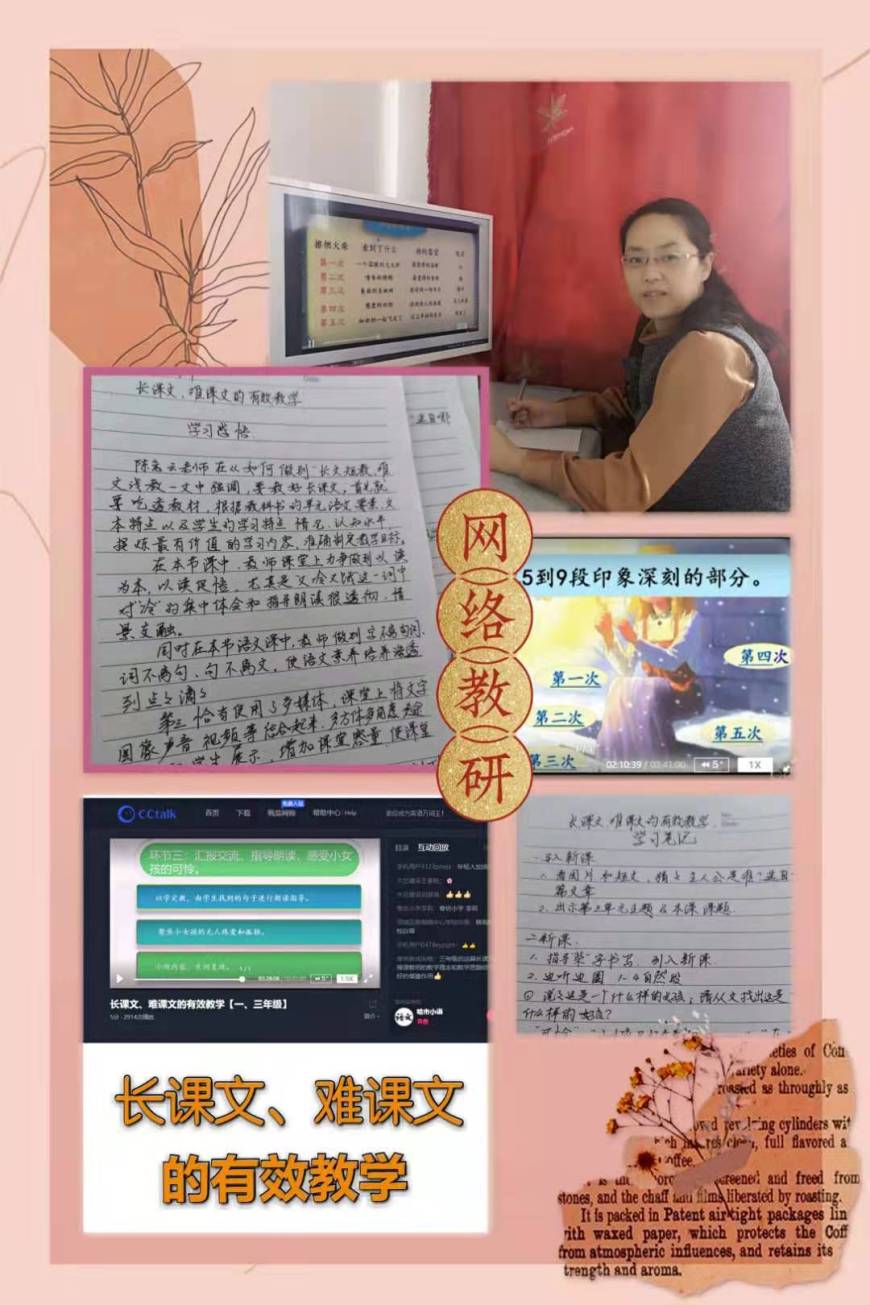 擦燃火柴 看到了什么
第一次
第二次
第三次
第四次
第五次
长课文、难课文的有效教学
学习感悟
陈宏云老师在从如何做到“长文短教、难
文浅教一文中强调，要教好长课文，首先就
要吃透教材，根据教科书的单元语文要素、文
本特点以及学生的学习特点 情况、认知水平，
提炼最有价值的学习内容，准确制定教学目标。
在本节课中，教师课堂上力争做到以读
为本，以读促悟，尤其是又冷又饿这一词中
对“冷”的集中体会和指导朗读很透彻，情
景交融。
同时在本节语文课中，教师做到字不离词、
词不离句、句不离文，使语文素养培养渗透
到点点滴滴
第三 恰当使用了多媒体，课堂上将文字
图像声音视频等结合起来，多方位多角度
学生展示，增加课堂容量，使课堂
网
络
教
研
5到9段印象深刻的部分。
第一次
第四次
第二次
第五次
第三次
02:10:39 / 03:41:00 5" 1X
CCtalk 首页 下载 我是网师 帮助中心 Help
目录 互动回放
环节三：汇报交流，指导朗读，感受小女
孩的可怜。
以学定教，由学生找到的句子进行朗读指导。
1/1
5" 1.5X
长课文、难课文的有效教学【一、三年级】
语文 哈市小语
长课文 难课文的有效教学
学习笔记
一、导入新课
1. 看图片和短文，猜主人公是谁？选自
哪篇文章
2. 出示第三单元主题 & 本课课题
二、新课
2. 边听边圈 1-4自然段
① 说说这是一个什么样的女孩，请从文找出这是
什么样的女孩？
长课文、难课文
的有效教学
eties of Con
ariety alone.
roasted as throughly as
ing cylinders wit
full flavored a
offee.
screened and freed from
stones, and the chaff and films liberated by roasting.
It is packed in Patent air tight packages lin
with waxed paper, which protects the Coff
from atmospheric influences, and retains its
trength and aroma.